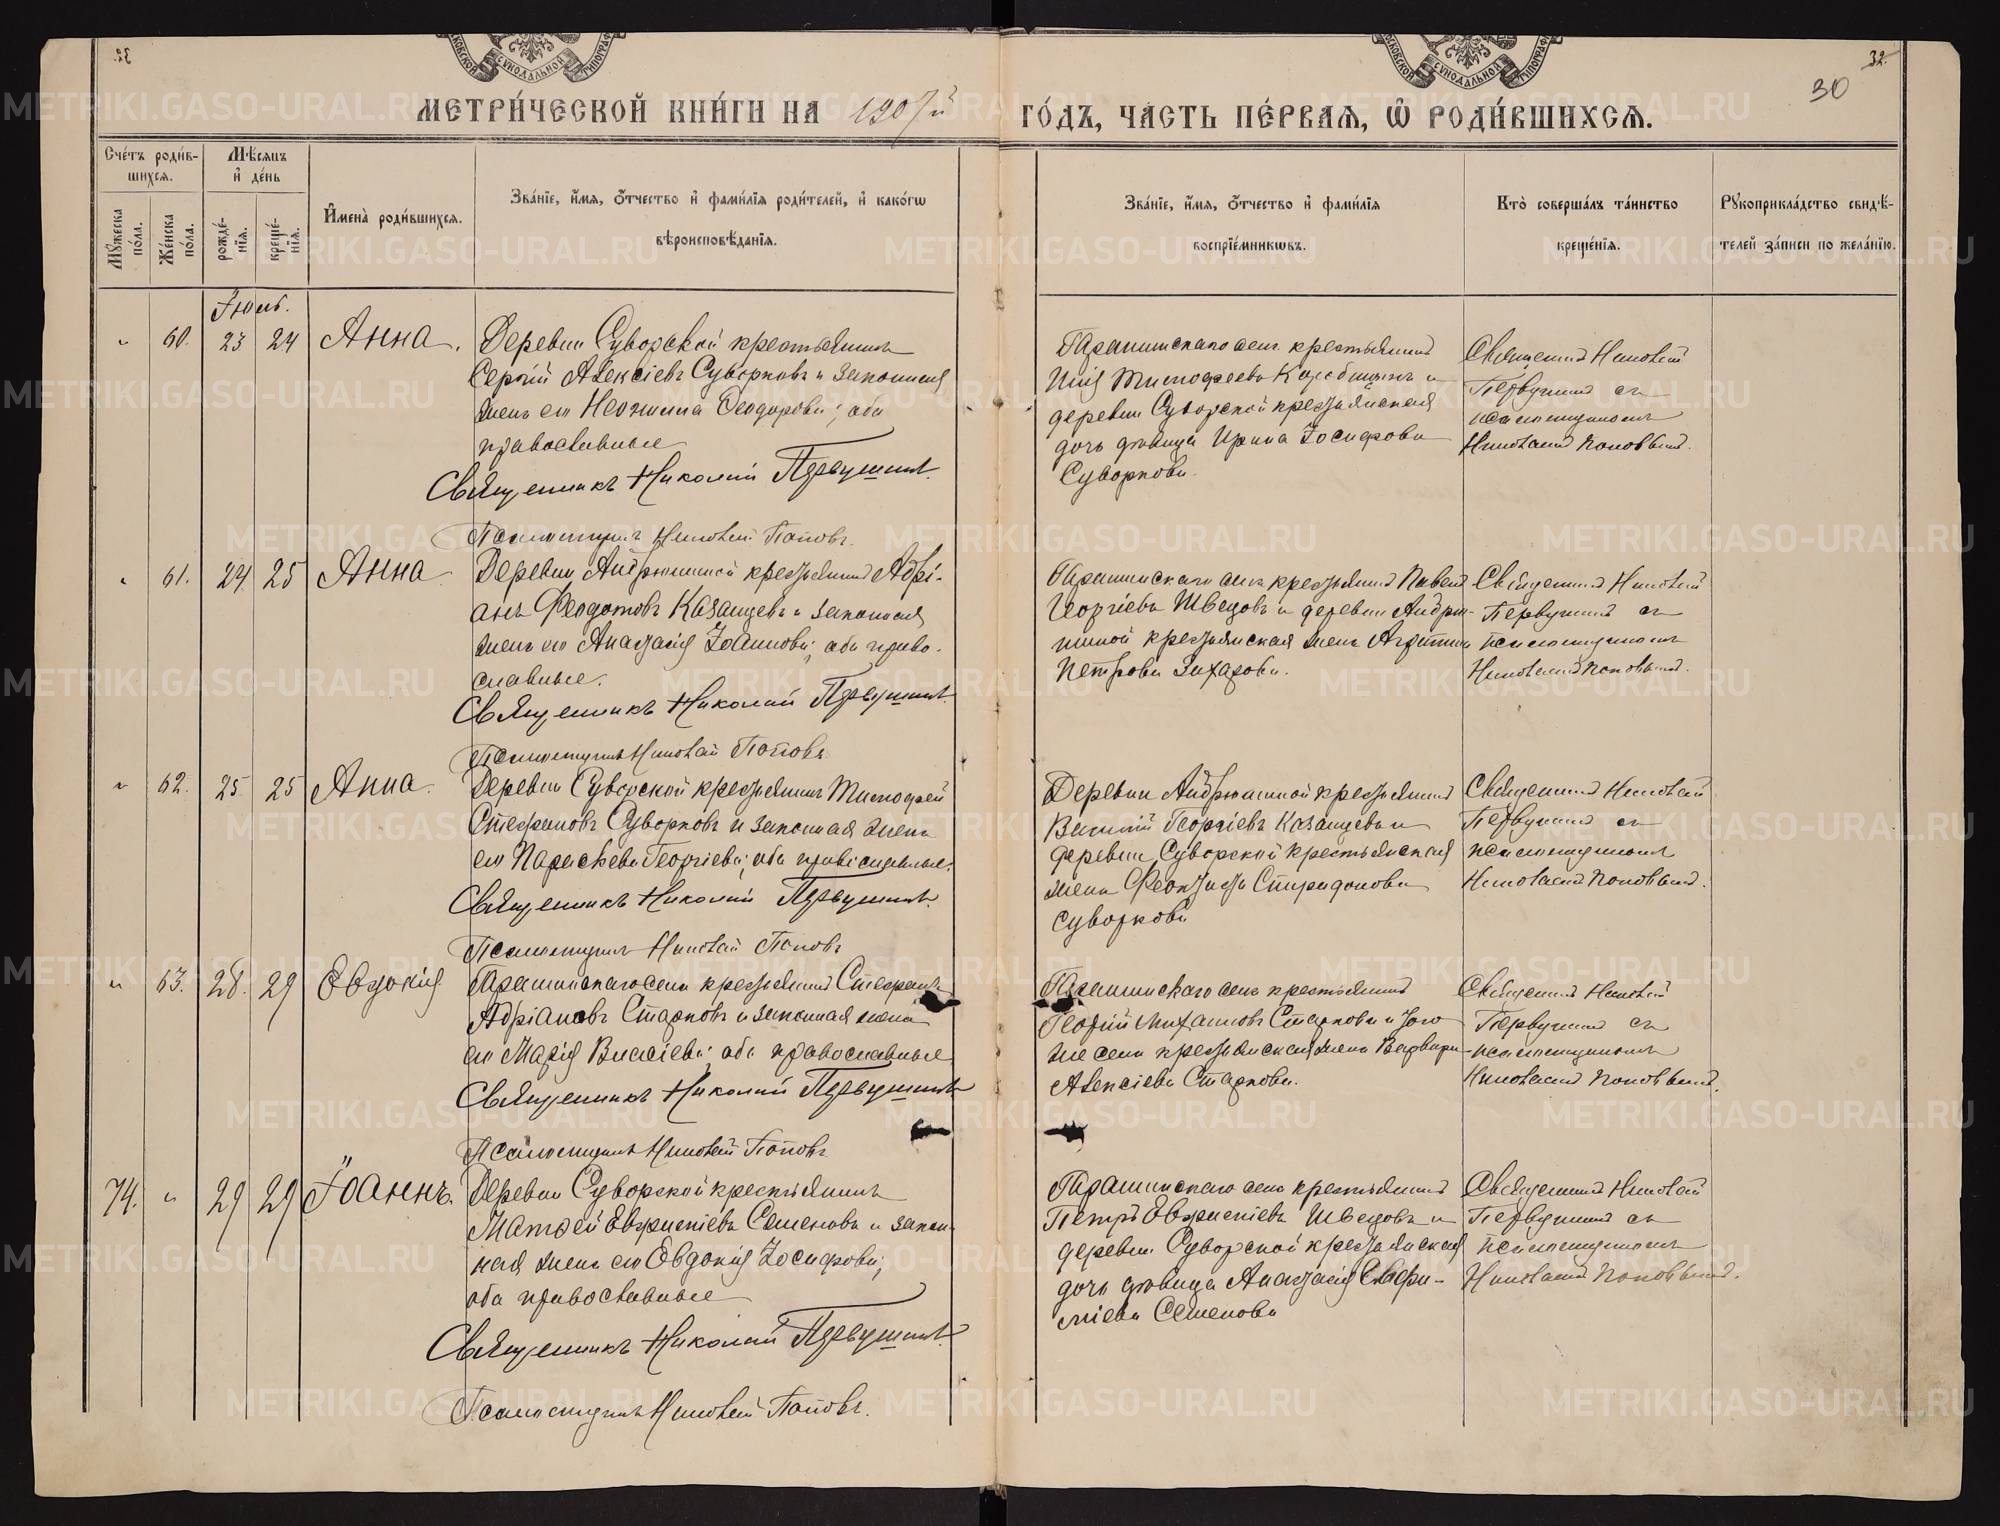 32.
30
МЕТРИ́ЧЕСКОЙ КНИ́ГИ НА 1907й ГО́ДЪ, ЧАСТЬ ПЕ́РВАЯ, Ѽ РОДИ́ВШИХСЯ.
Сче́тъ роди́в-
шихся.
Мѣ́сяцъ
и҆ де́нь
Мꙋ́жеска по́ла.
Же́нска по́ла.
рожде́-
нїѧ.
креще́-
нїѧ.
И҆мена̀ роди́вшихся.
Зва́нїе, и҆́мя, ѻ҆́тчество и҆ фами́лїя роди́телей, и҆ како́гѡ
вѣроисповѣ́данїѧ.
Зва́нїе, и҆́мя, ѻ҆́тчество и҆ фами́лїя
воспрїе́мникѡвъ.
Кто̀ соверша́лъ та́инство
креще́нїѧ.
Рꙋкоприкла́дство свидѣ́-
телей за́писи по жела́нїю.
60. 23 24 Анна.
Деревни Суворской крестьянинъ
Сергій Алексіевъ Суворковъ и законная
жена его Неонилла Ѳеодорова; оба
православные
Священникъ Николай Первушинъ.
Псаломщикъ Николай Поповъ.
крестьянинъ
Илія Тимоѳеевъ и
деревни Суворской крестьянская
дочь дѣвица Ирина Іосифова
Суворкова.
Священникъ Николай
Первушинъ съ
псаломщикомъ
Николаемъ Поповымъ.
61. 24. 25 Анна.
Деревни Андрюшиной крестьянинъ Адрі-
анъ Ѳеодотовъ Казанцевъ и законная
жена его Анастасія Іоаннова; оба право-
славные.
Священникъ Николай Первушинъ.
Псаломщикъ Николай Поповъ
крестьянинъ Павелъ
Георгіевъ Швецовъ и деревни Андрю-
шиной крестьянская жена
Петрова Захарова.
Священникъ Николай
Первушинъ съ
псаломщикомъ
Николаемъ Поповымъ.
62. 25. 25 Анна.
Деревни Суворской крестьянинъ Тимоѳей
Стефановъ Суворковъ и законная жена
его Параскева Георгіева; оба православные.
Священникъ Николай Первушинъ.
Псаломщикъ Николай Поповъ
Деревни Андрюшиной крестьянинъ
Василій Георгіевъ Казанцевъ и
деревни Суворской крестьянская
жена Спиридонова
Суворкова
Священникъ Николай
Первушинъ съ
псаломщикомъ
Николаемъ Поповымъ.
63. 28. 29 Евдокія
села крестьянинъ Стефанъ
Адріановъ Старковъ и законная жена
его Марія Василіева; оба православные
Священникъ Николай Первушинъ
Псаломщикъ Николай Поповъ
крестьянинъ
Георгій Михаиловъ Старковъ и того
же села крестьянская жена Варвара
Алексіева Старкова.
Священникъ Николай
Первушинъ съ
псаломщикомъ
Николаемъ Поповымъ.
74. 29 29 Іоаннъ.
Деревни Суворской крестьянинъ
Матѳей Евфиміевъ Семеновъ и закон-
ная жена его Евдокія Іосифова;
оба православные
Священникъ Николай Первушинъ.
Псаломщикъ Николай Поповъ.
крестьянинъ
Петръ Швецовъ и
деревни Суворской крестьянская
дочь дѣвица Анастасія Евфи-
міева Семенова
Священникъ Николай
Первушинъ съ
псаломщикомъ
Николаемъ Поповымъ.
METRIKI.GASO-URAL.RU